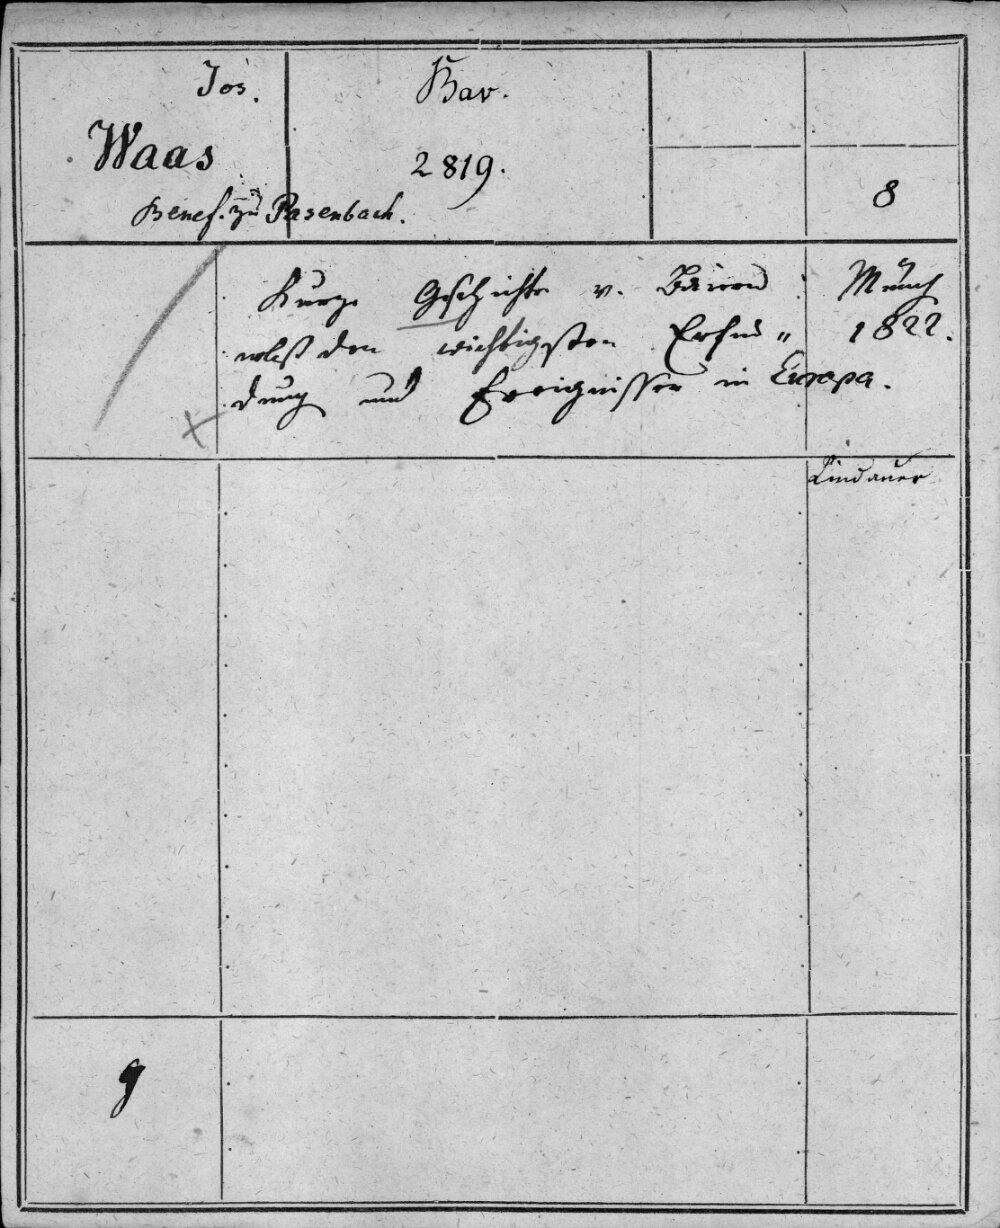 Jos. Bav.
Waas 2819.
8
Benef. zu Pasenbach.
Kurze Geschichte v. Baiern Münch
nebst den wichtigsten Erfin„ 1822.
dung und Ereignissen in Europa.
Lindauer
g